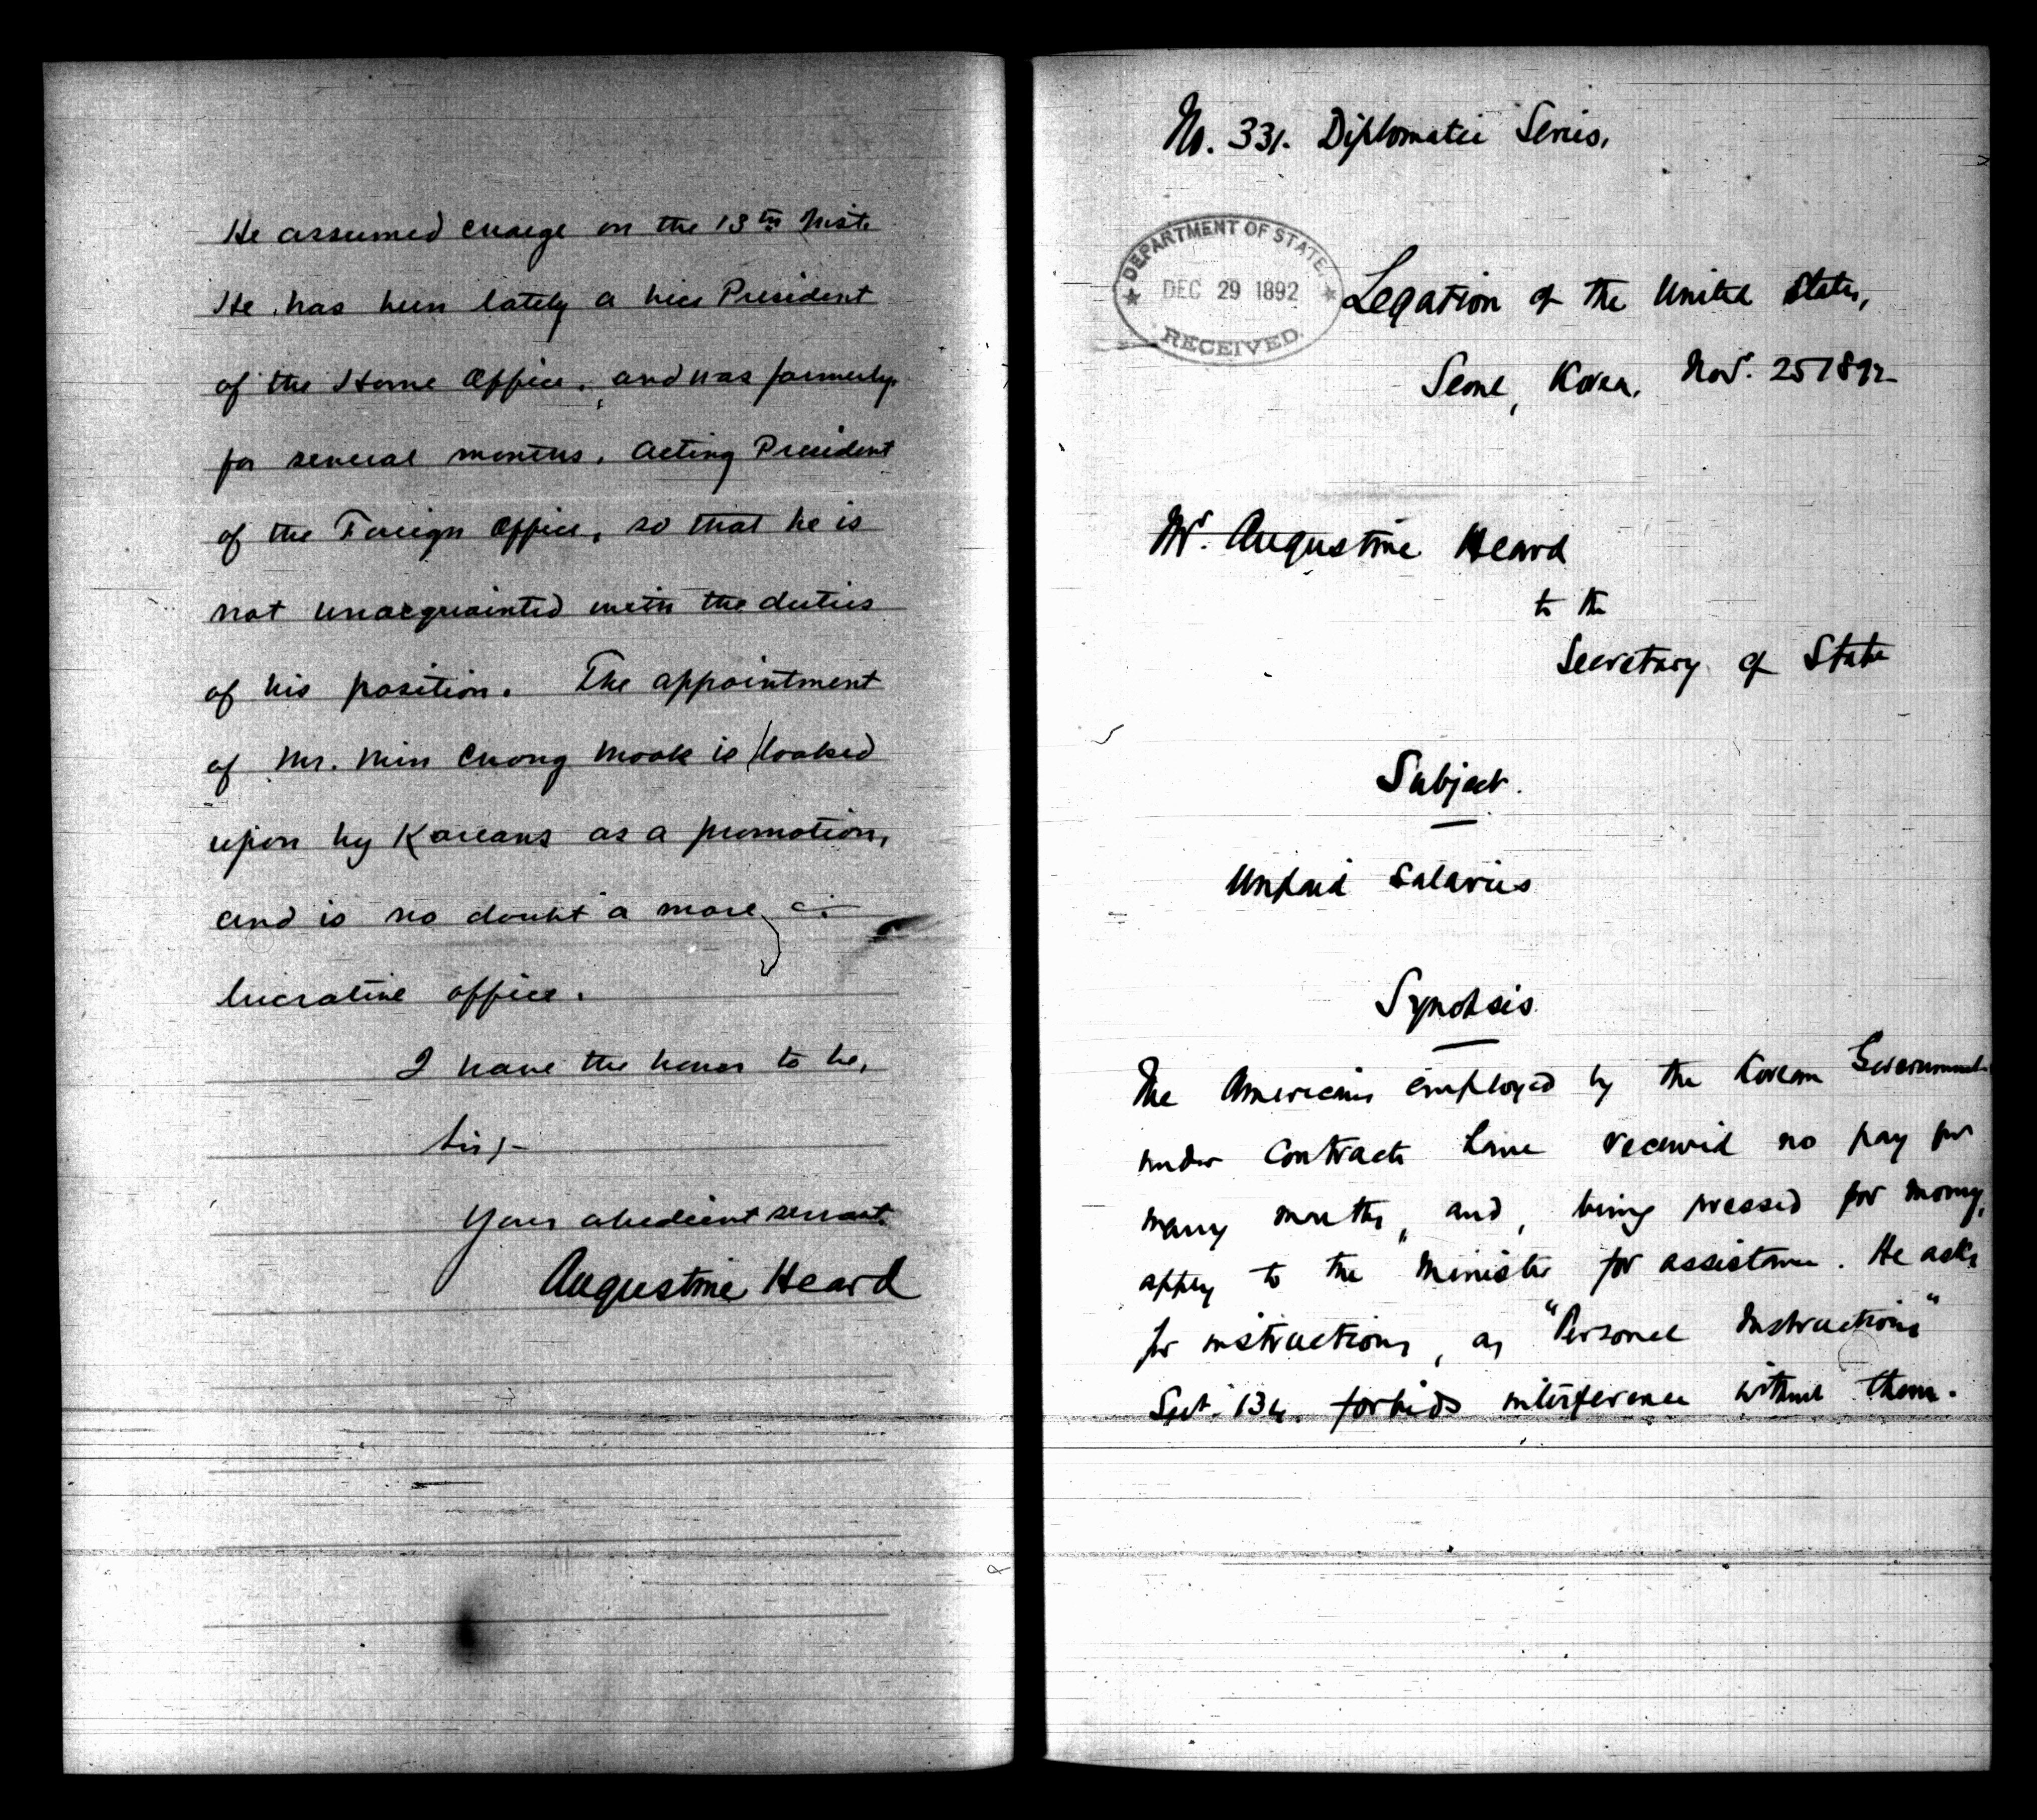 He assumed charge on the 13th Inst.
He has been lately a vice President
of the Home Office, and was formerly,
for several months, Acting President
of the Foreign Office, so that he is
not unacquainted with the duties
of his position. The appointment
of Mr. Min Chong Mook is looked
upon by Koreans as a promotion,
and is no doubt a more
lucrative office.
I have the honor to be,
Sir;-
Your obedient servant.
Augustine Heard
No. 331. Diplomatic Series.
DEPARTMENT OF STATE,
DEC 29 1892
RECEIVED.
Legation of the United States,
Seoul, Korea. Novr. 25 1892
Mr. Augustine Heard
to the
Secretary of State
Subject.
Unpaid Salaries
Synopsis
The Americans employed by the Korean Government
under Contracts have received no pay for
many months, and, being pressed for money,
apply to the Minister for assistance. He asks
for instructions, as "Personal Instructions"
Sect. 134. forbids interference without them.